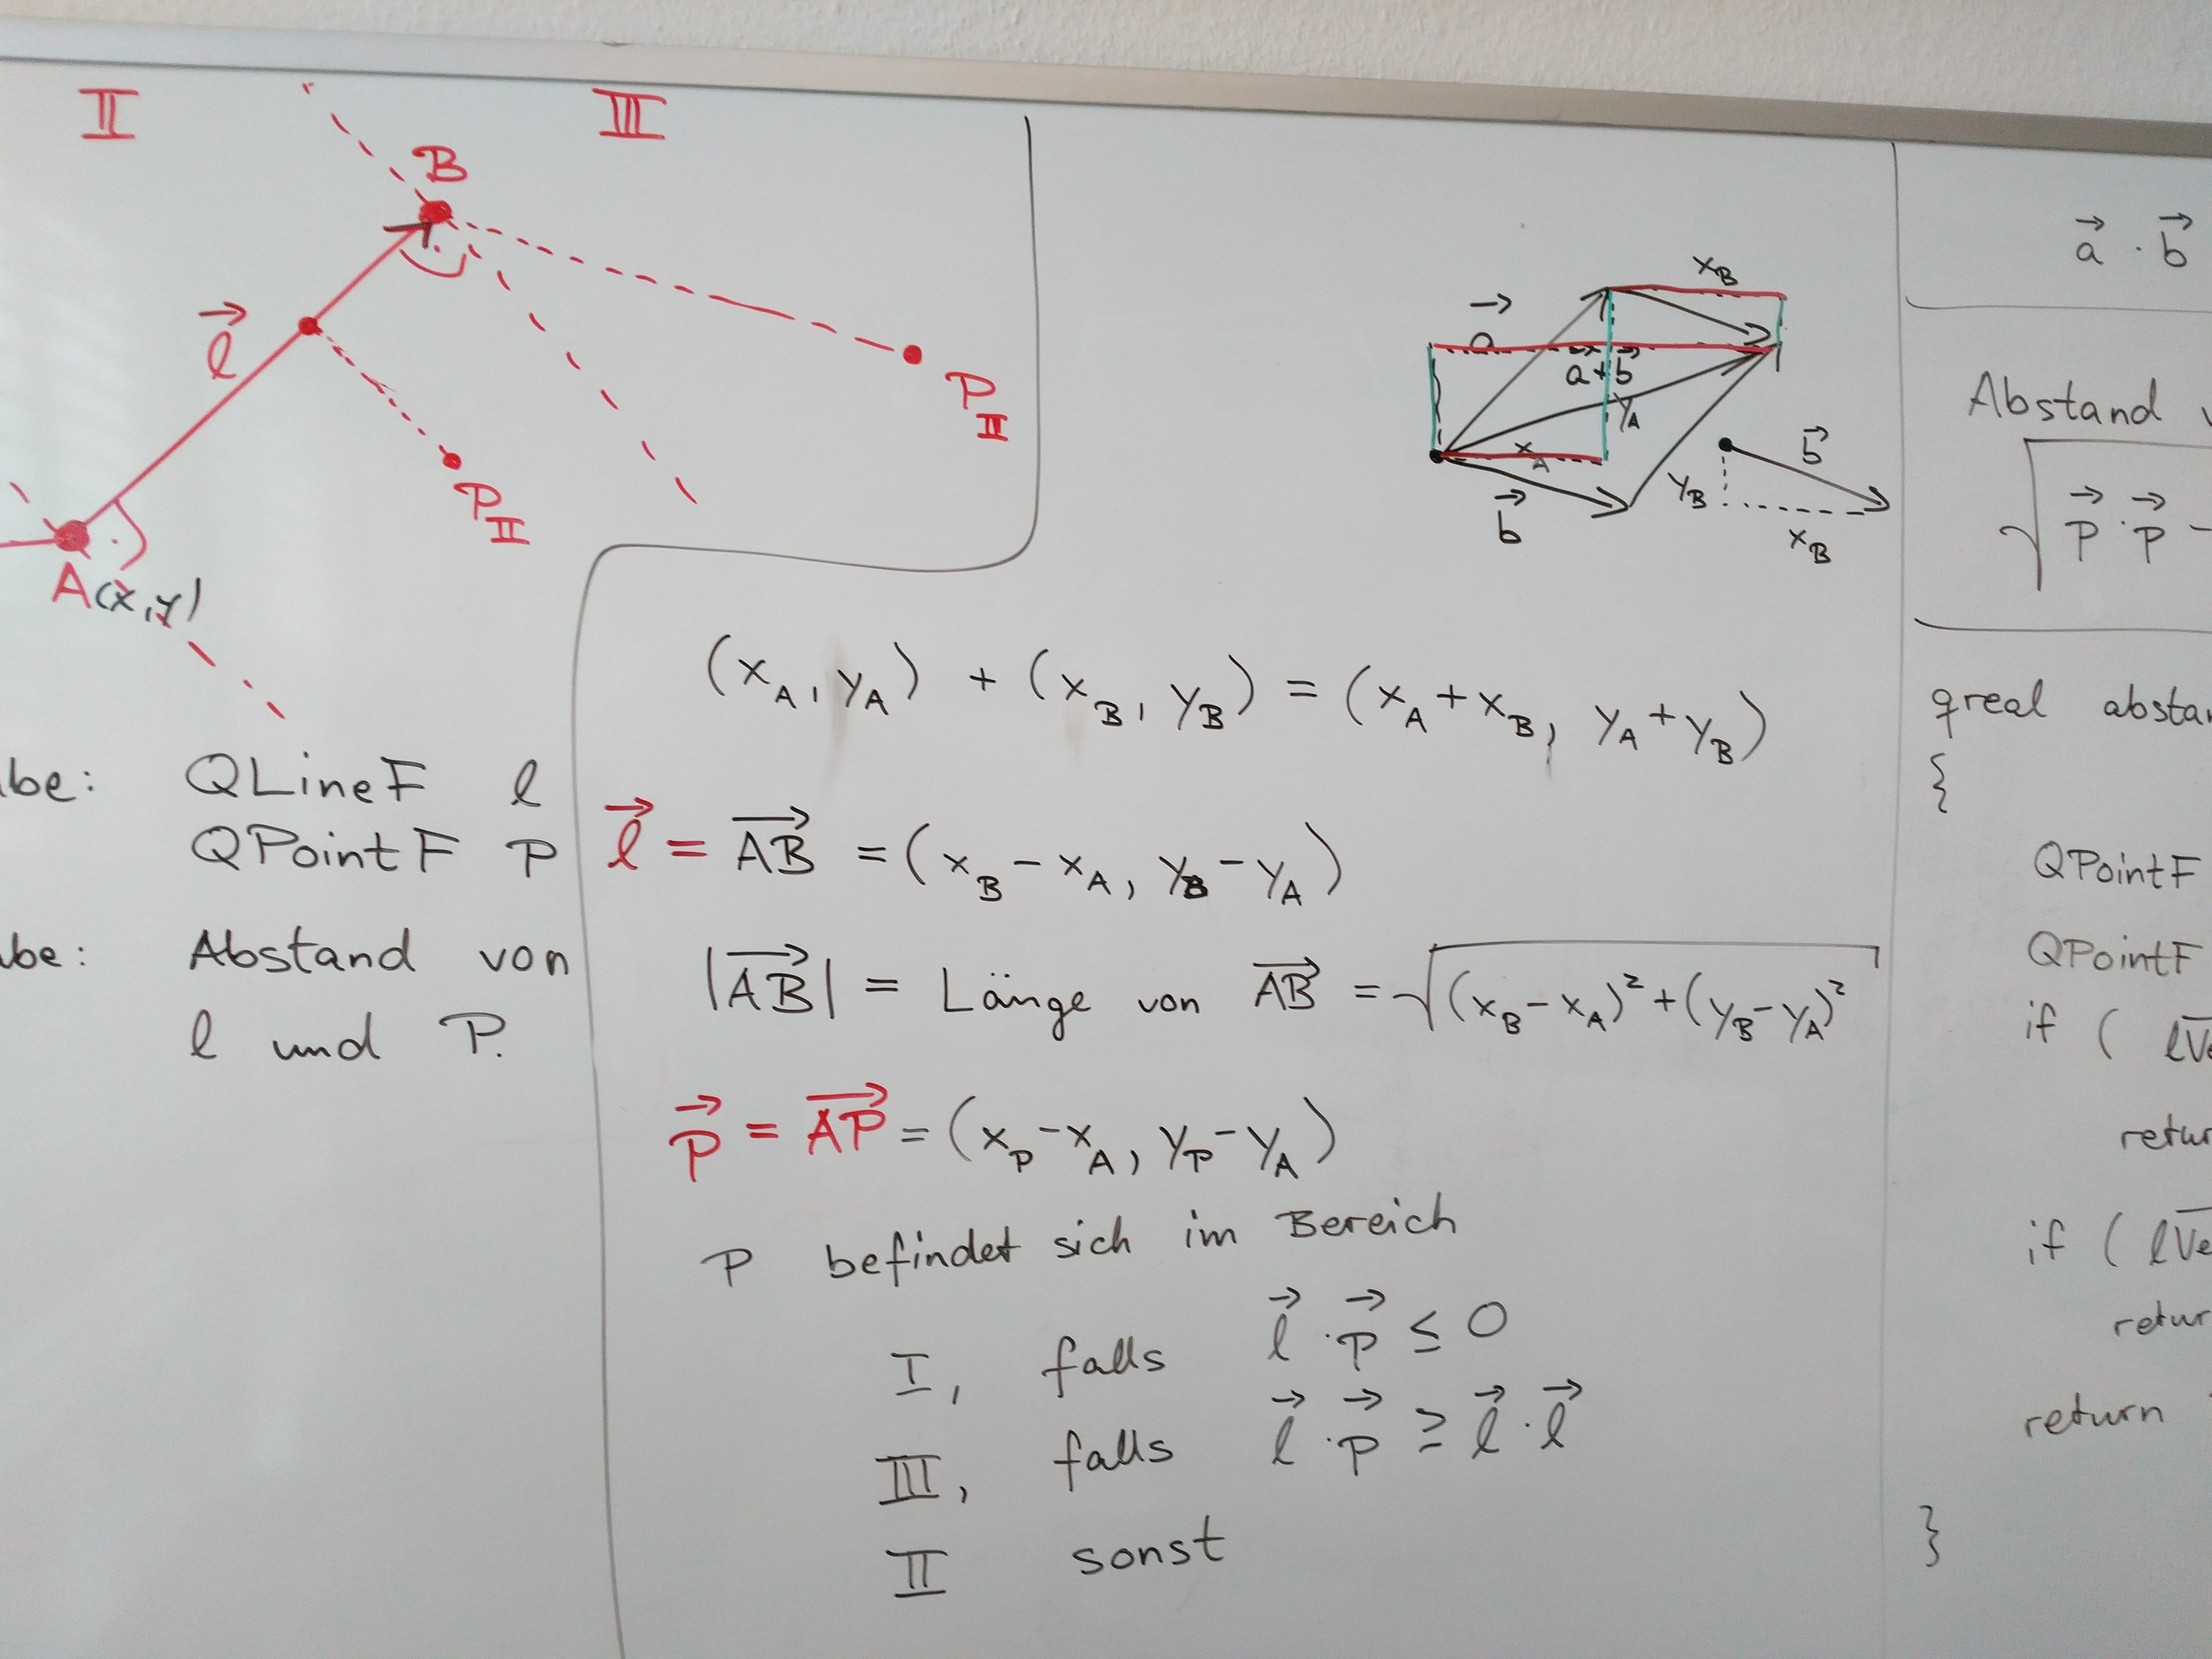 II III
B
l⃗
P_II
P_II
A(x,y)
be: QLineF l
QPointF P
be: Abstand von
l und P.
x_B
a⃗
a⃗+b⃗
y_A
x_A
b⃗
b⃗
y_B
x_B
(x_A, y_A) + (x_B, y_B) = (x_A + x_B, y_A + y_B)
l⃗ = AB⃗ = (x_B - x_A, y_B - y_A)
|AB⃗| = Länge von AB⃗ = √((x_B - x_A)² + (y_B - y_A)²)
p⃗ = AP⃗ = (x_P - x_A, y_P - y_A)
P befindet sich im Bereich
I, falls l⃗ · p⃗ ≤ 0
III, falls l⃗ · p⃗ ≥ l⃗ · l⃗
II sonst
a⃗ · b⃗
Abstand
√ p⃗ · p⃗ -
qreal abstan
{
QPointF
QPointF
if ( lVe
retur
if ( lVe
retur
return
}